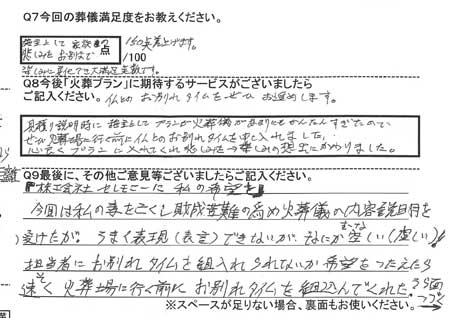 Q7今回の葬儀満足度をお教えください。
喪主として 家族 点 /100 150点差上げます。
悲しみお別れまで
楽しみに変化でき大満足走数です。
Q8今後「火葬プラン」に期待するサービスがございましたら
ご記入ください。仏とのお別れタイムをぜひお進めします。
見積り説明時に 喪主としてプランが火葬儀があまりにもかんたんすぎたので、
ぜひ火葬場に行く前に仏とのお別れタイムを申し入れました。
心よくプランに入れてくれ悲しみ→楽しみの発出にかわりました。
Q9最後に、その他ご意見等ございましたらご記入ください。
『株式会社 セレモニーに 私の希望を』
今回は私の妻を亡くし財政苦難の為め火葬儀の内容説明を
受けたが。うまく表現(表言)できないが、なにか空しい(虚しい)!
むな
担当者にお別れタイムを組入れられないか希望をつたえたら
速く火葬場に行く前にお別れタイムを組込んでくれた。
うら面
つづく
※スペースが足りない場合、裏面もお使いください。